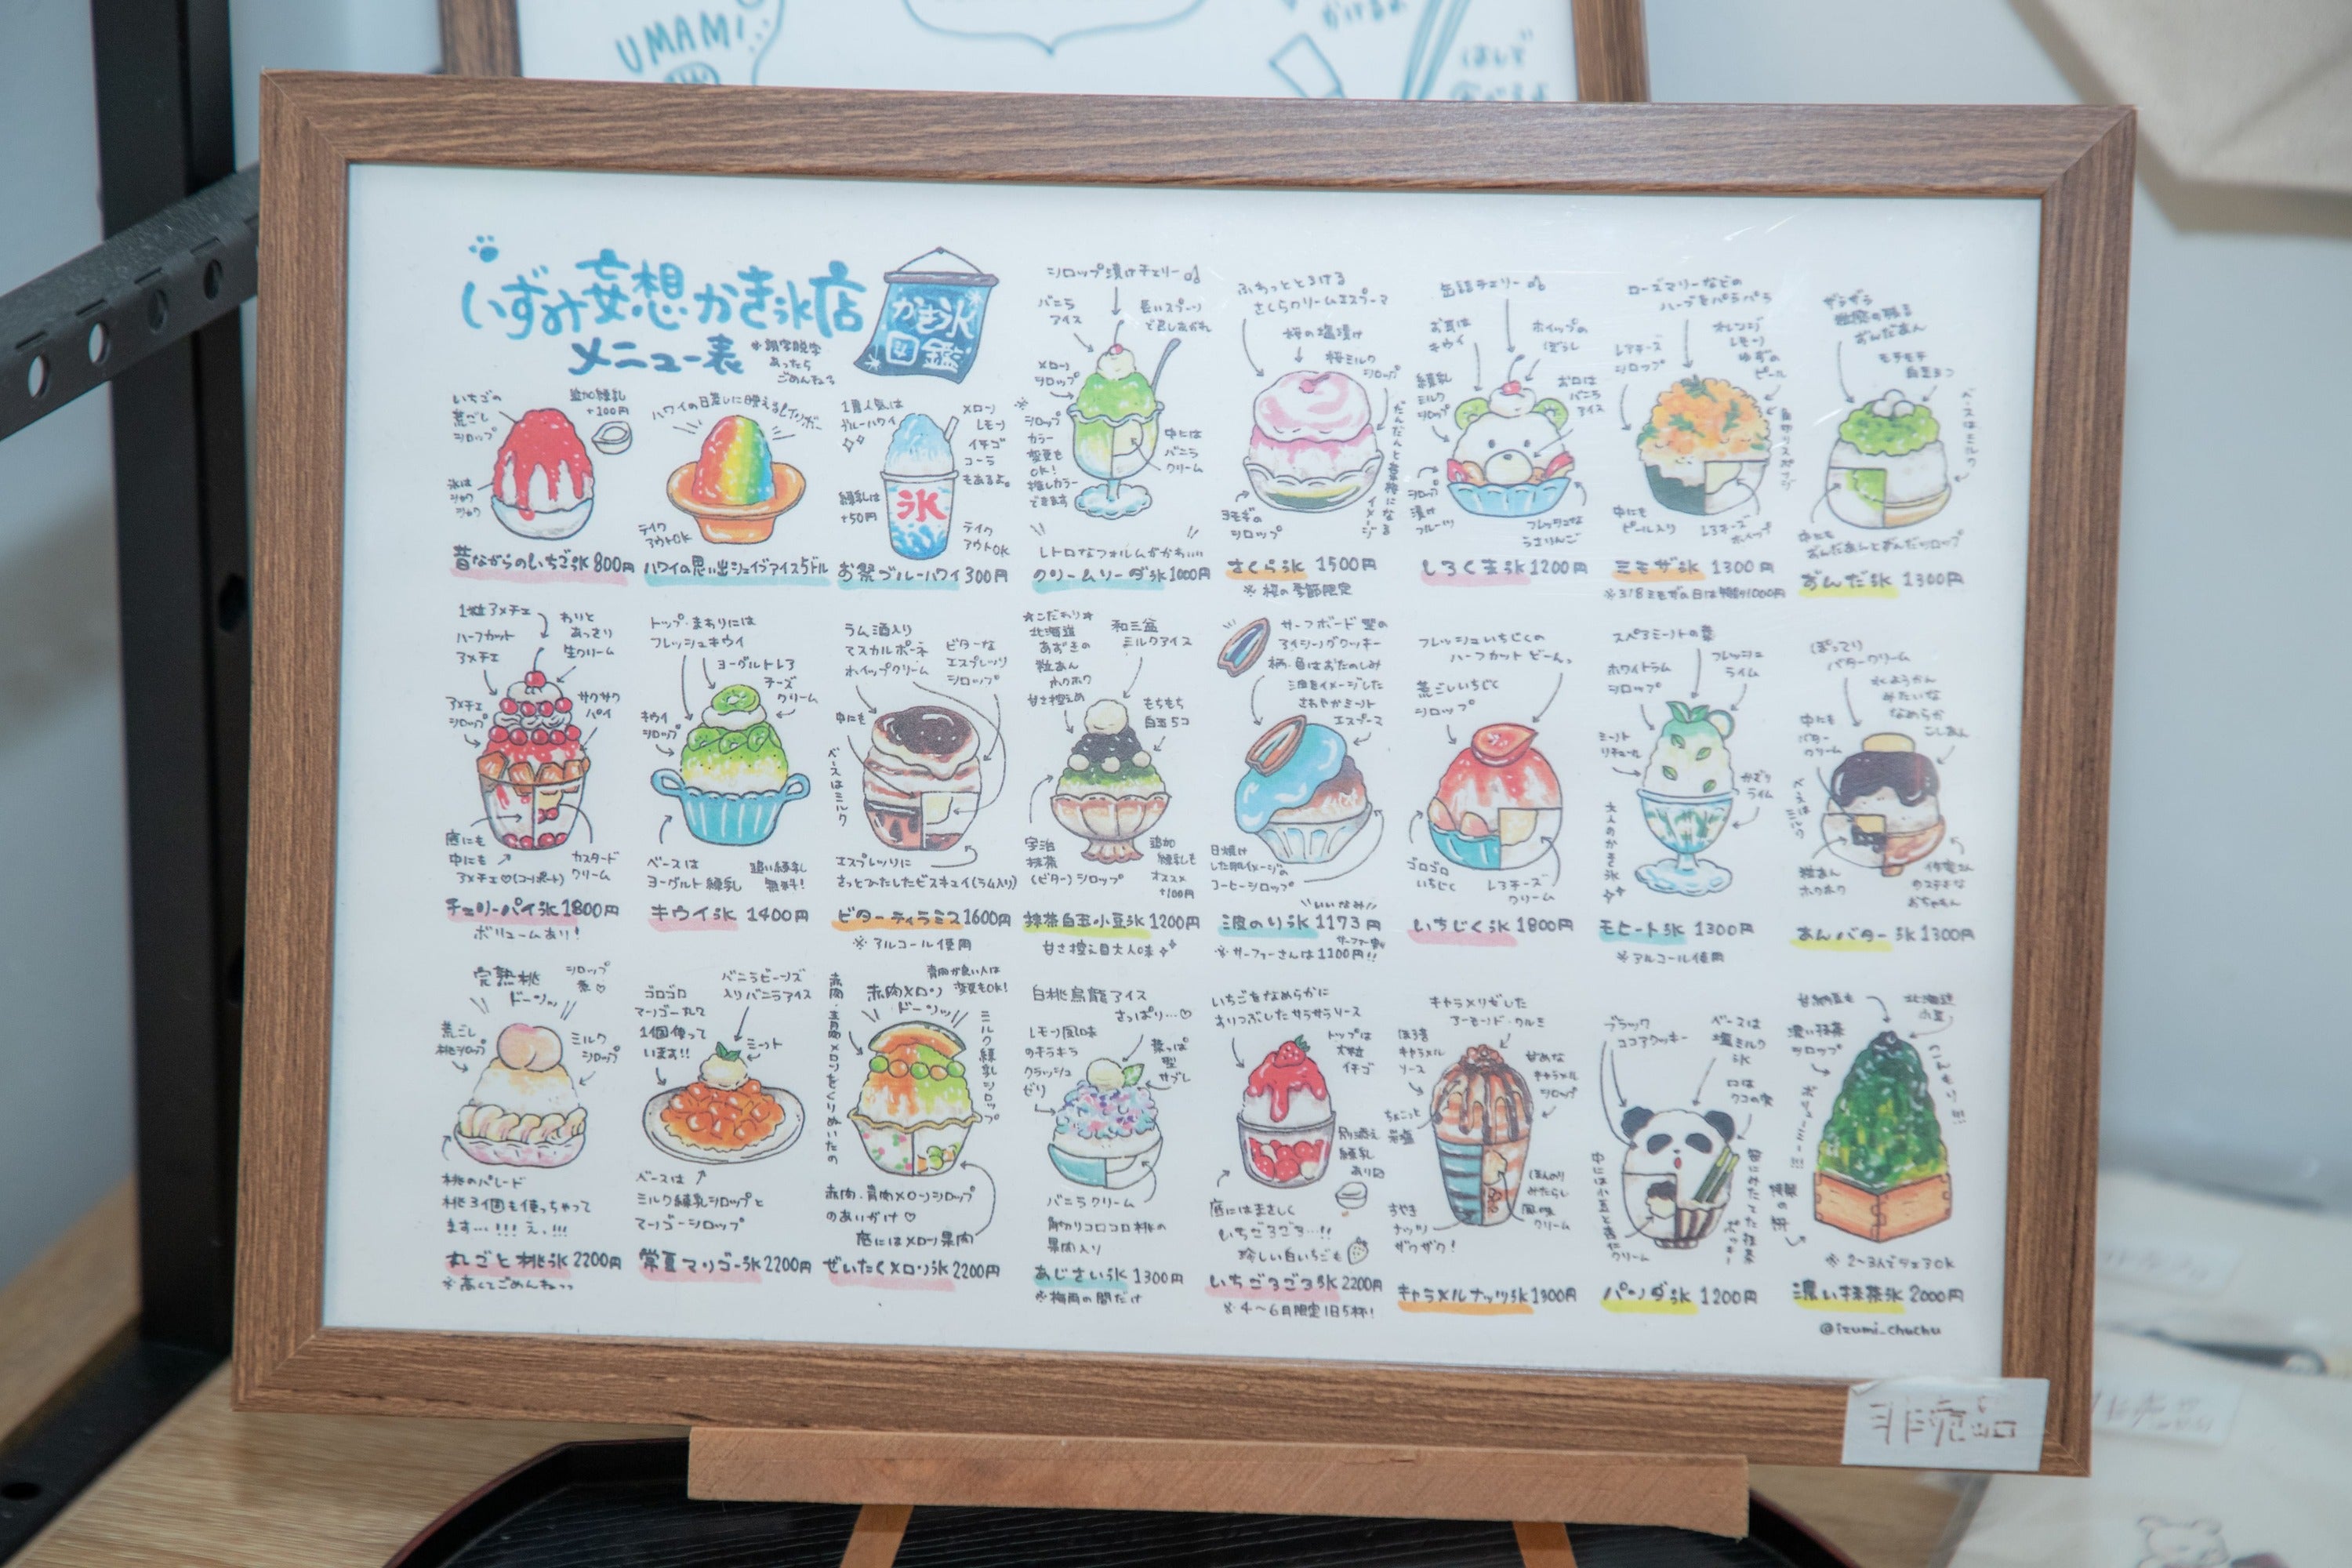 UMAMI
かけるめ
はしで
いずみ妄想かき氷店
メニュー表
※誤字脱字
あったら
ごめんねっ
かき氷
図鑑
いちごの
荒ごし
シロップ
追加練乳
+100円
氷は
シャク
シャク
昔ながらのいちご氷 800円
テイク
アウトOK
ハワイの思い出シェイブアイス5ドル
1番人気は
ブルーハワイ
メロン
レモン
イチゴ
コーラ
もあるよ。
練乳は
+50円
氷
テイク
アウトOK
お祭ブルーハワイ 300円
シロップ漬けチェリー
バニラ
アイス
長いスプーン
で召しあがれ
メロン
シロップ
※
シロップ
カラー
変更も
OK!
推しカラー
できます
中には
バニラ
クリーム
レトロなフォルムがかわいい
クリームソーダ氷1000円
ふわっととろける
さくらクリームエスプーマ
桜の塩漬け
桜ミルク
シロップ
だんだんと葉桜になる
イメージ
ヨモギの
シロップ
さくら氷 1500円
※桜の季節限定
缶詰チェリー
お耳は
キウイ
ホイップの
ぼうし
練乳
ミルク
シロップ
お口は
バニラ
アイス
シロップ
漬け
フルーツ
フレッシュな
うさりんご
しろくま氷1200円
ローズマリーなどの
ハーブをパラパラ
レアチーズ
シロップ
オレンジ
レモン
ゆずの
ピール
中にも
ピール入り
レアチーズ
ホイップ
ミモザ氷 1300円
※3/8ミモザの日は特別1000円
ザラザラ
粒感の残る
ずんだあん
モチモチ
白玉3つ
ベースはミルク
中にも
ずんだあんとずんだシロップ
ずんだ氷 1300円
1粒アメチェ
ハーフカット
アメチェ
わりと
あっさり
生クリーム
アメチェ
シロップ
サクサク
パイ
底にも
中にも
アメチェ♡(コンポート)
カスタード
クリーム
チェリーパイ氷1800円
ボリュームあり!
トップ・まわりには
フレッシュキウイ
ヨーグルトレア
チーズ
クリーム
キウイ
シロップ
ベースは
ヨーグルト練乳
追い練乳
無料!
キウイ氷 1400円
ラム酒入り
マスカルポーネ
ホイップクリーム
ビターな
エスプレッソ
シロップ
中にも
ベースはミルク
エスプレッソに
さっとひたしたビスキュイ(ラム入り)
ビターティラミス1600円
※アルコール使用
★こだわり★
北海道
あずきの
粒あん
ホクホク
甘さ控えめ
和三盆
ミルクアイス
もちもち
白玉5コ
宇治
抹茶
(ビター)シロップ
追加
練乳も
オススメ
+100円
抹茶白玉小豆氷1200円
甘さ控え目大人味
サーフボード型の
アイシングクッキー
柄・色はおたのしみ
波をイメージした
さわやかミント
エスプーマ
日焼け
した肌イメージの
コーヒーシロップ
いいなみ
波のり氷 1173円
※サーファーさんは1100円!!
フレッシュいちじくの
ハーフカットどーん。
荒ごしいちじく
シロップ
ゴロゴロ
いちじく
レアチーズ
クリーム
いちじく氷1800円
スペアミントの葉
ホワイトラム
シロップ
フレッシュ
ライム
ミント
リキュール
かざり
ライム
大人のかき氷
モヒート氷 1300円
※アルコール使用
ぽってり
バタークリーム
水ようかん
みたいな
なめらか
こしあん
中にも
バター
クリーム
ベースはミルク
粒あん
ホクホク
あんバター氷1300円
完熟桃
ドーンッ
シロップ
煮♡
荒ごし
桃シロップ
ミルク
シロップ
桃のパレード
桃3個も使っちゃって
ます…!!! え、!!!
丸ごと桃氷2200円
※高くてごめんねっっ
ゴロゴロ
マンゴー丸々
1個使って
います!!
バニラビーンズ
入りバニラアイス
ミント
ベースは
ミルク練乳シロップと
マンゴーシロップ
常夏マンゴー氷2200円
赤肉・青肉メロンをくりぬいたの
赤肉メロン
ドーンッ
青肉が良い人は
変更もOK!
ミルク練乳シロップ
赤肉・青肉メロンシロップ
のあいがけ♡
底にはメロン果肉
ぜいたくメロン氷2200円
白桃烏龍アイス
さっぱり…♡
レモン風味
のキラキラ
クラッシュ
ゼリー
葉っぱ
型
サブレ
バニラクリーム
角切りコロコロ桃の
果肉入り
あじさい氷1300円
※梅雨の間だけ
いちごをなめらかに
すりつぶしたサラサラソース
トップは
大粒
イチゴ
別添え
練乳
あり
底にはまさしく
いちごろごろ…!!
珍しい白いちごも
いちごろごろ氷2200円
※4～6月限定1日5杯!
キャラメリゼした
アーモンド・クルミ
ほろ苦
キャラメル
ソース
甘めな
キャラメル
シロップ
ちょこっと
岩塩
ほんのり
みたらし
風味
クリーム
すやき
ナッツ
ザクザク!
キャラメルナッツ氷1900円
ブラック
ココアクッキー
ベースは
塩ミルク
氷
口は
クコの実
中には小豆と杏仁
クリーム
笹にみたてた抹茶
ポッキー
パンダ氷 1200円
甘納豆も
北海道
小豆
濃い抹茶
シロップ
特製
の枡
※2～3人でシェアOK
濃い抹茶氷2000円
@izumi_chuchu
非売品